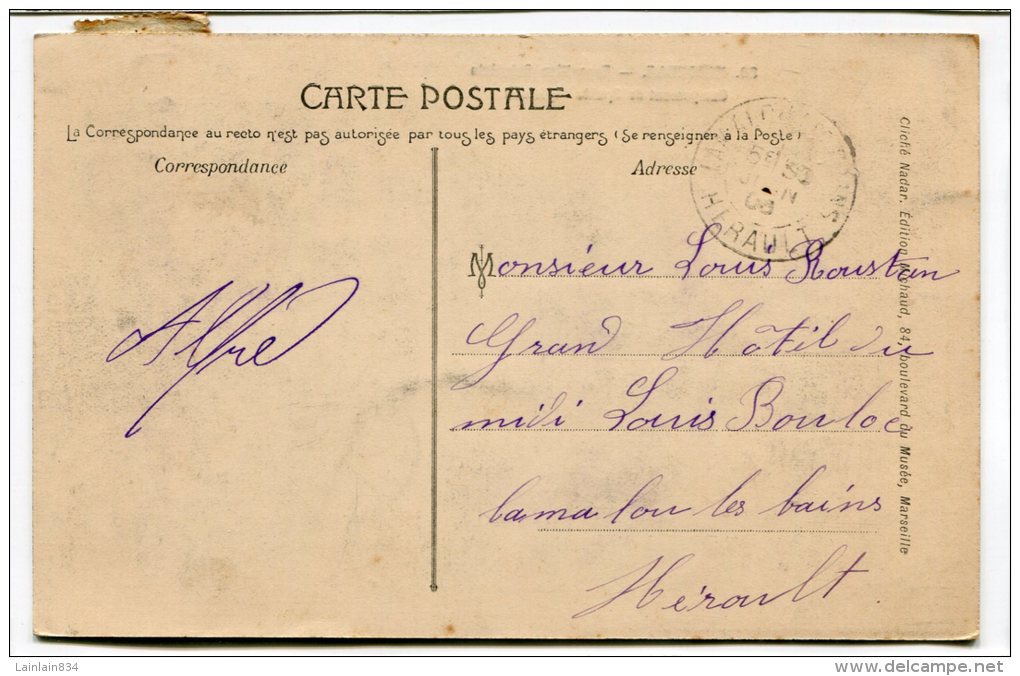 CARTE POSTALE
La Correspondance au recto n'est pas autorisée par tous les pays étrangers (Se renseigner à la Poste)
Correspondance
Adresse
HÉRAULT
Monsieur Louis Roustan
Grand Hotil du
midi Louis Bouloc
lamalou les bains
Hérault
Alfré
Cliché Nadar. Édition Michaud, 84, boulevard du Musée, Marseille
Lainlain834
www.delcampe.net